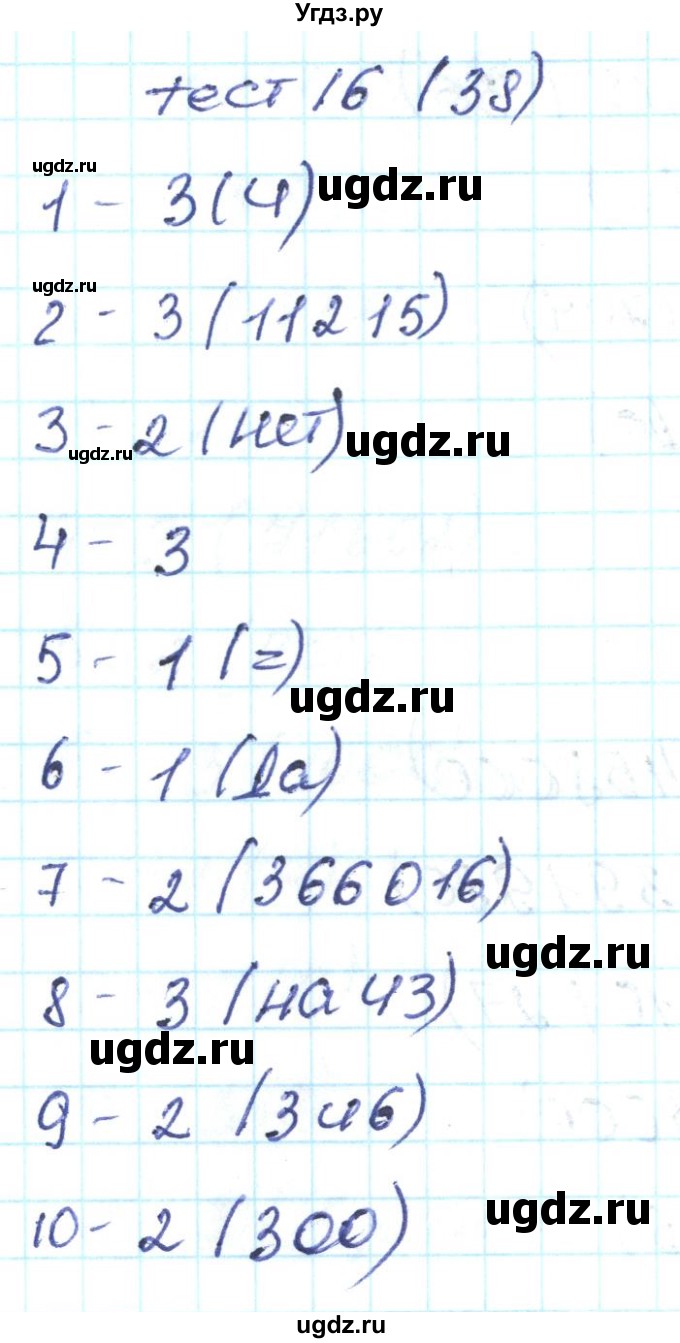 Угдз.ру
тест 16 (38)
ugdz.ru
1 - 3 (4)
ugdz.ru
ugdz.ru
2 - 3 (11215)
3 - 2 (нет)
ugdz.ru
ugdz.ru
4 - 3
5 - 1 (=)
ugdz.ru
6 - 1 (да)
7 - 2 (366016)
ugdz.ru
8 - 3 (на 43)
ugdz.ru
9 - 2 (346)
10 - 2 (300)
ugdz.ru
ugdz.ru